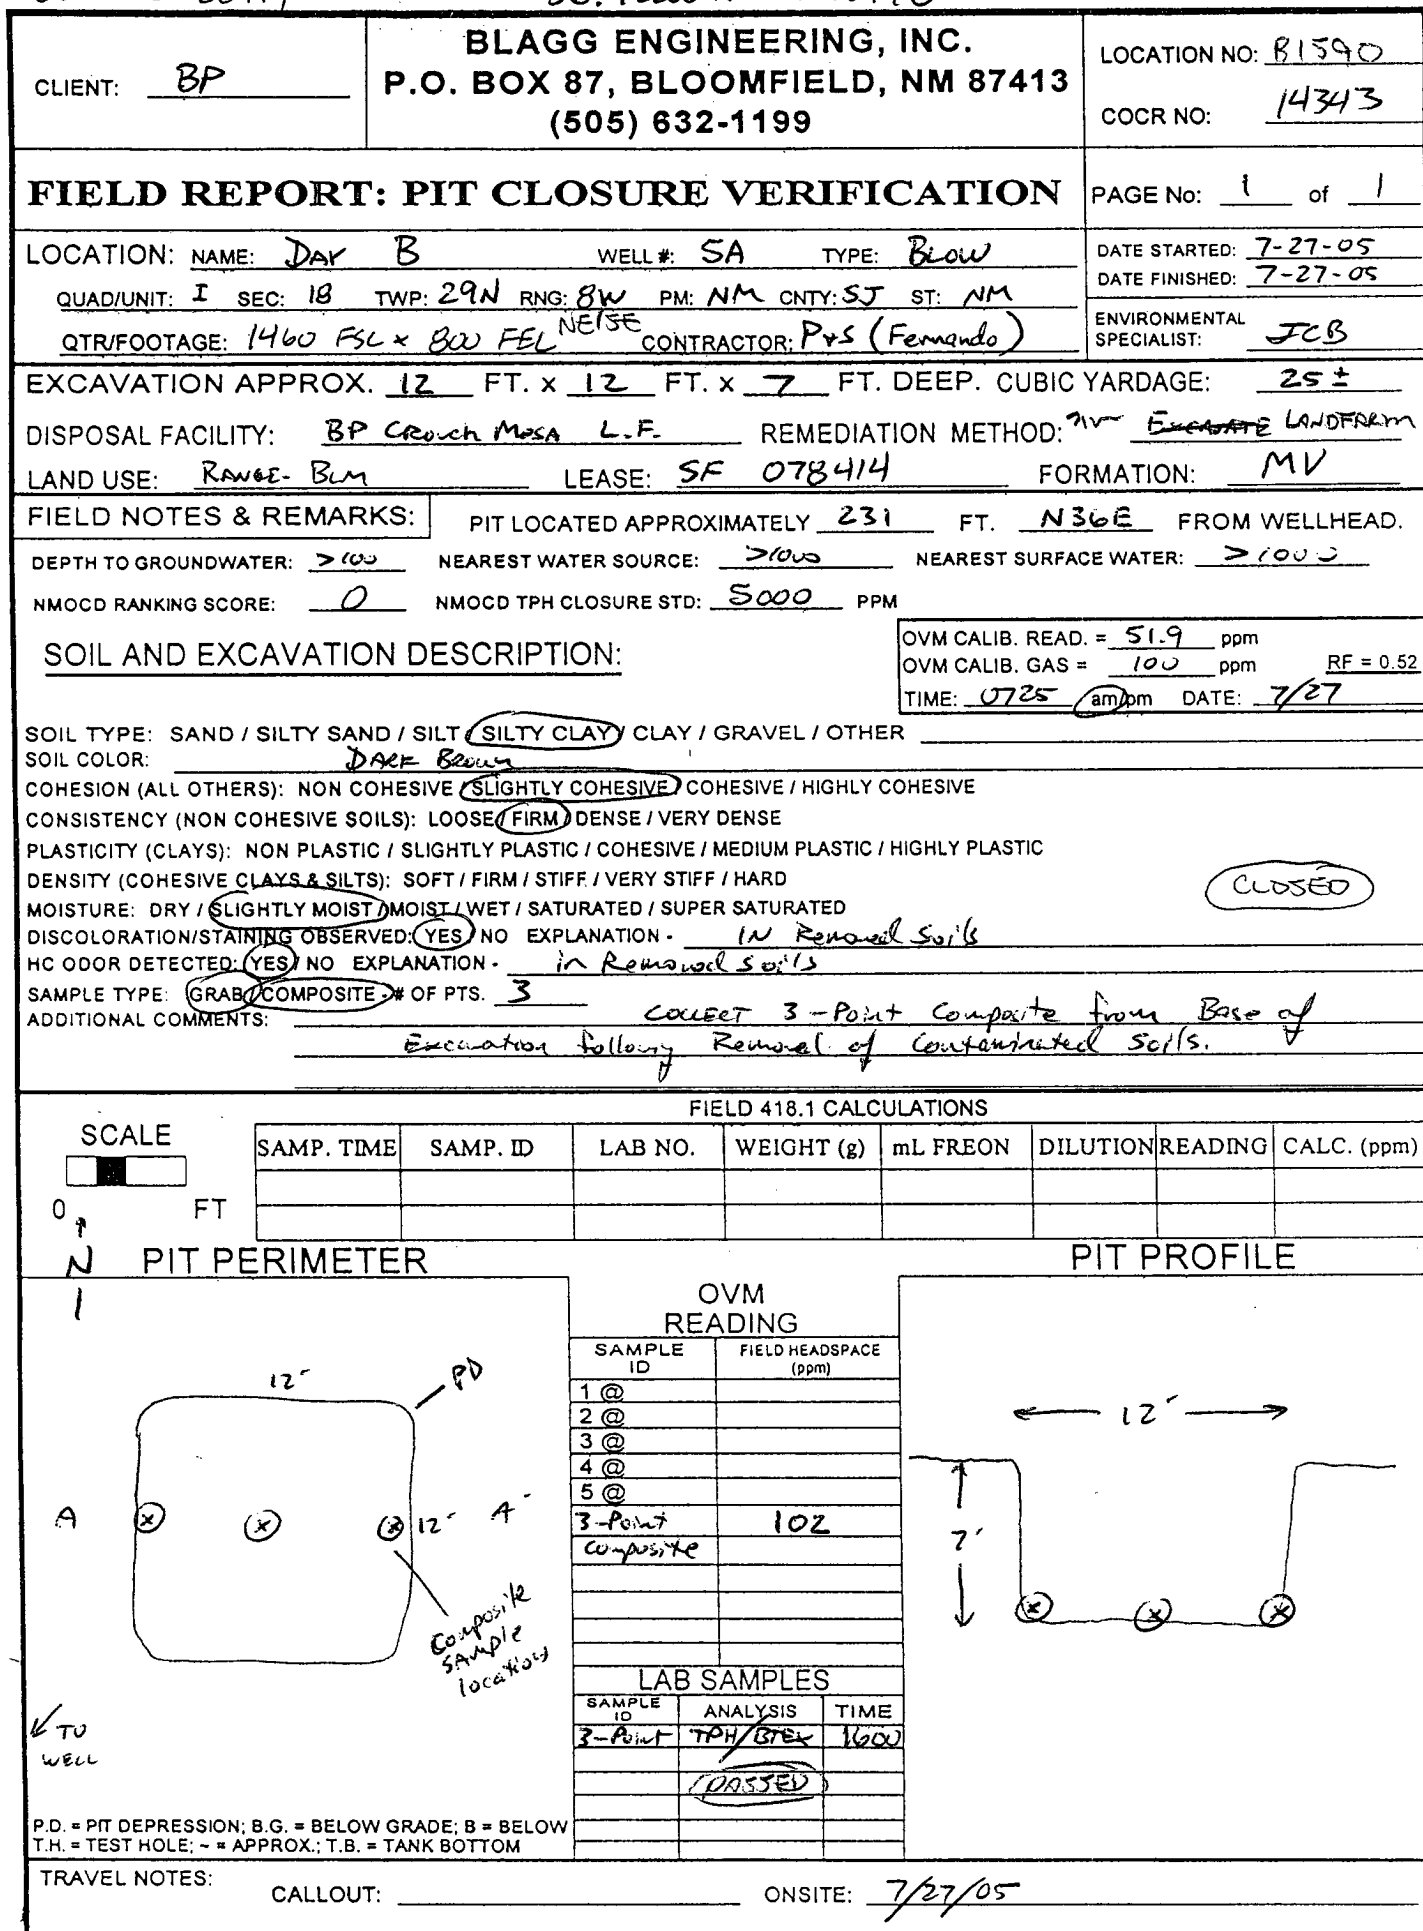 BLAGG ENGINEERING, INC.
P.O. BOX 87, BLOOMFIELD, NM 87413
(505) 632-1199
CLIENT: BP
LOCATION NO: B1590
COCR NO: 14343
FIELD REPORT: PIT CLOSURE VERIFICATION
PAGE No: 1 of 1
LOCATION: NAME: DAY B WELL #: 5A TYPE: BLOW
QUAD/UNIT: I SEC: 18 TWP: 29N RNG: 8W PM: NM CNTY: SJ ST: NM
QTR/FOOTAGE: 1460 FSL x 800 FEL NE/SE CONTRACTOR: P+S (Fernando)
DATE STARTED: 7-27-05
DATE FINISHED: 7-27-05
ENVIRONMENTAL
SPECIALIST: JCB
EXCAVATION APPROX. 12 FT. x 12 FT. x 7 FT. DEEP. CUBIC YARDAGE: 25 ±
DISPOSAL FACILITY: BP CROUCH MESA L.F. REMEDIATION METHOD: EXCAVATE LANDFARM
LAND USE: RANGE - BLM LEASE: SF 078414 FORMATION: MV
FIELD NOTES & REMARKS: PIT LOCATED APPROXIMATELY 231 FT. N36E FROM WELLHEAD.
DEPTH TO GROUNDWATER: >100 NEAREST WATER SOURCE: >1000 NEAREST SURFACE WATER: >1000
NMOCD RANKING SCORE: 0 NMOCD TPH CLOSURE STD: 5000 PPM
SOIL AND EXCAVATION DESCRIPTION:
OVM CALIB. READ. = 51.9 ppm
OVM CALIB. GAS = 100 ppm RF = 0.52
TIME: 0725 am/pm DATE: 7/27
SOIL TYPE: SAND / SILTY SAND / SILT / SILTY CLAY / CLAY / GRAVEL / OTHER
SOIL COLOR: DARK BROWN
COHESION (ALL OTHERS): NON COHESIVE / SLIGHTLY COHESIVE / COHESIVE / HIGHLY COHESIVE
CONSISTENCY (NON COHESIVE SOILS): LOOSE / FIRM / DENSE / VERY DENSE
PLASTICITY (CLAYS): NON PLASTIC / SLIGHTLY PLASTIC / COHESIVE / MEDIUM PLASTIC / HIGHLY PLASTIC
DENSITY (COHESIVE CLAYS & SILTS): SOFT / FIRM / STIFF / VERY STIFF / HARD
CLOSED
MOISTURE: DRY / SLIGHTLY MOIST / MOIST / WET / SATURATED / SUPER SATURATED
DISCOLORATION/STAINING OBSERVED: YES / NO EXPLANATION - IN Removed Soils
HC ODOR DETECTED: YES / NO EXPLANATION - in Removed soils
SAMPLE TYPE: GRAB / COMPOSITE - # OF PTS. 3
ADDITIONAL COMMENTS: COLLECT 3-Point Composite from Base of
Excavation following Removal of Contaminated Soils.
FIELD 418.1 CALCULATIONS
SCALE
0 FT
SAMP. TIME SAMP. ID LAB NO. WEIGHT (g) mL FREON DILUTION READING CALC. (ppm)
N
PIT PERIMETER
12'
PD
A
12'
A'
Composite
Sample
location
TO
WELL
P.D. = PIT DEPRESSION; B.G. = BELOW GRADE; B = BELOW
T.H. = TEST HOLE; ~ = APPROX.; T.B. = TANK BOTTOM
OVM
READING
SAMPLE ID FIELD HEADSPACE (ppm)
1 @
2 @
3 @
4 @
5 @
3-Point 102
Composite
LAB SAMPLES
SAMPLE ID ANALYSIS TIME
3-Point TPH/BTEX 1600
PASSED
PIT PROFILE
12'
7'
TRAVEL NOTES:
CALLOUT: ONSITE: 7/27/05